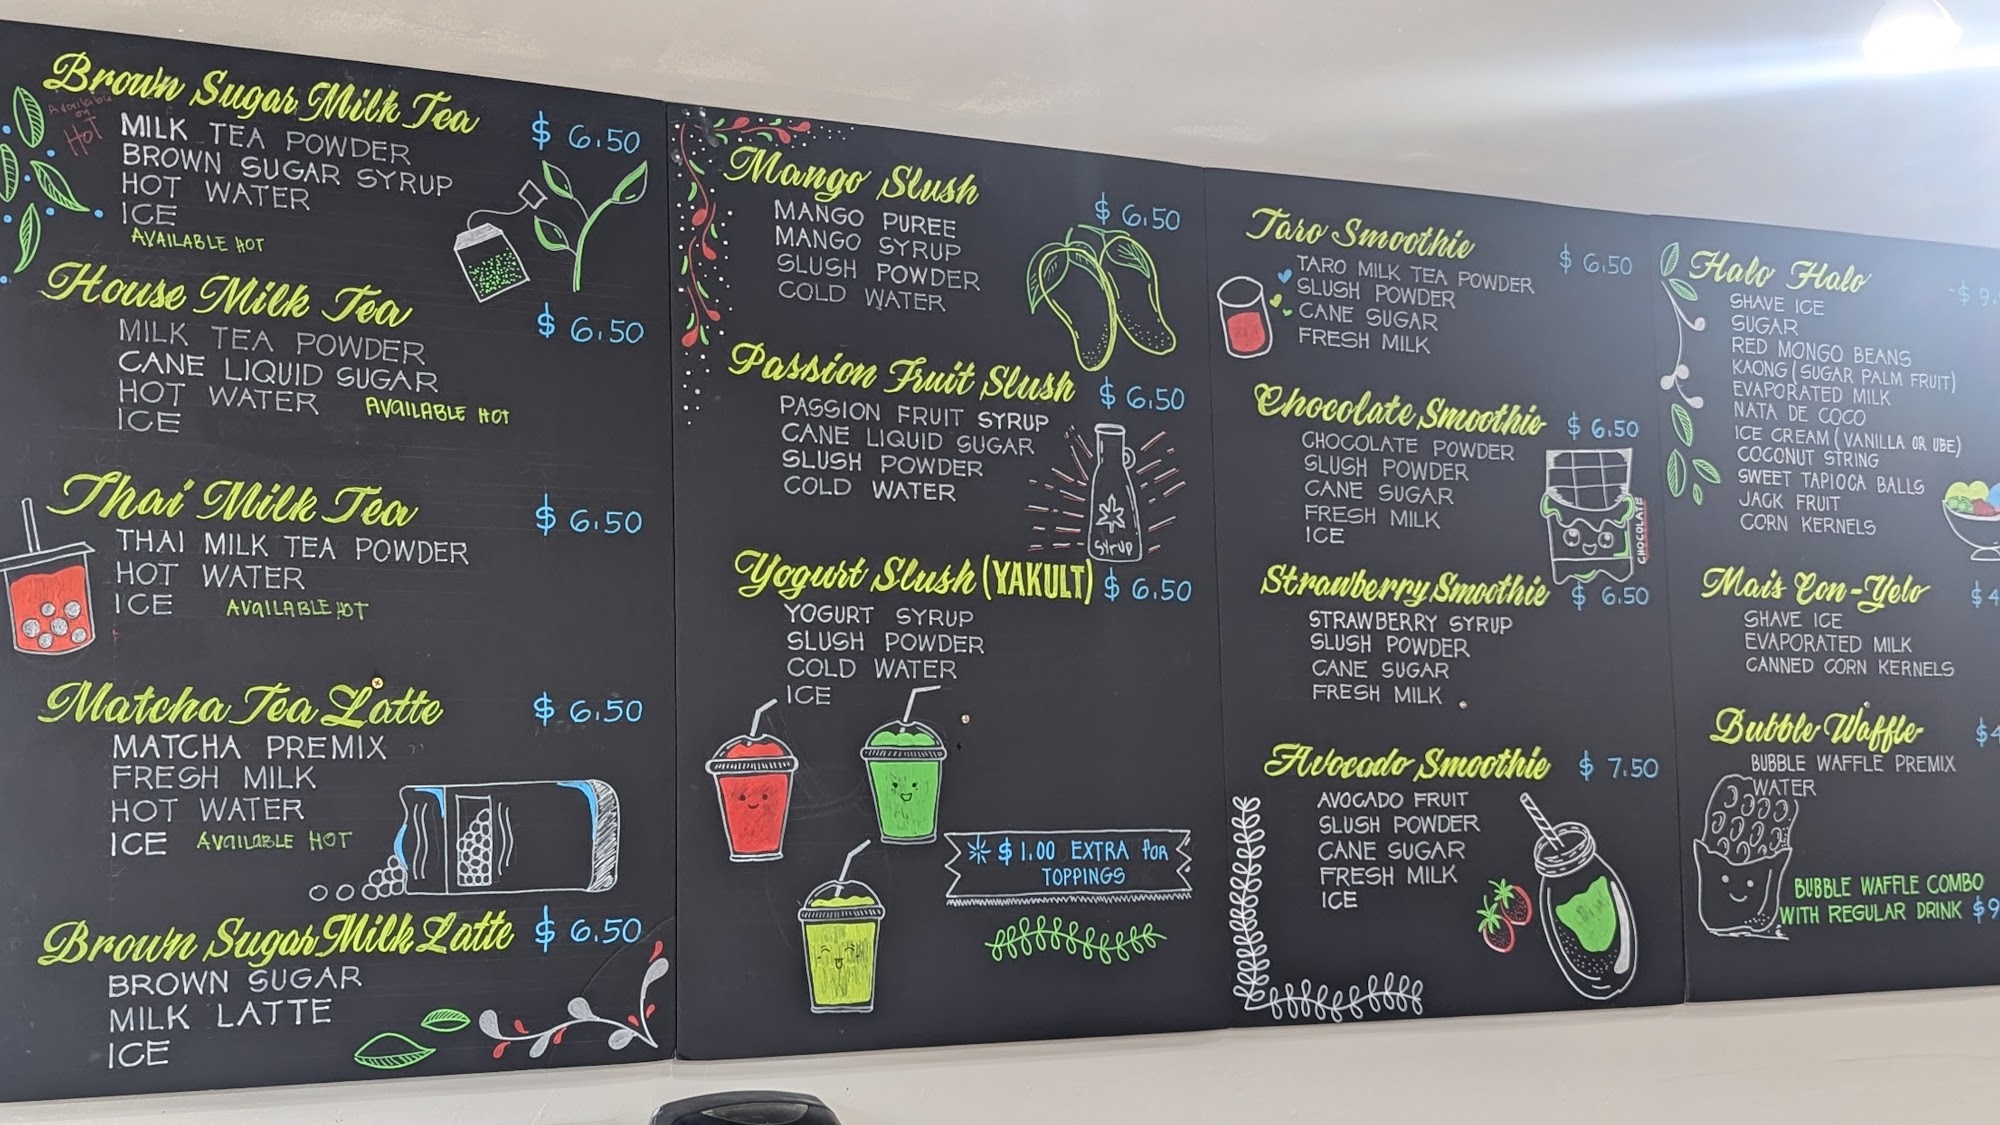 Brown Sugar Milk Tea $ 6.50
Available
HOT
MILK TEA POWDER
BROWN SUGAR SYRUP
HOT WATER
ICE
AVAILABLE HOT
House Milk Tea $ 6.50
MILK TEA POWDER
CANE LIQUID SUGAR
HOT WATER AVAILABLE HOT
ICE
Thai Milk Tea $ 6.50
THAI MILK TEA POWDER
HOT WATER
ICE AVAILABLE HOT
Matcha Tea Latte $ 6.50
MATCHA PREMIX
FRESH MILK
HOT WATER
ICE AVAILABLE HOT
Brown Sugar Milk Latte $ 6.50
BROWN SUGAR
MILK LATTE
ICE
Mango Slush $ 6.50
MANGO PUREE
MANGO SYRUP
SLUSH POWDER
COLD WATER
Passion Fruit Slush $ 6.50
PASSION FRUIT SYRUP
CANE LIQUID SUGAR
SLUSH POWDER
COLD WATER
Syrup
Yogurt Slush (YAKULT) $ 6.50
YOGURT SYRUP
SLUSH POWDER
COLD WATER
ICE
$ 1.00 EXTRA FOR
TOPPINGS
Taro Smoothie $ 6.50
TARO MILK TEA POWDER
SLUSH POWDER
CANE SUGAR
FRESH MILK
Chocolate Smoothie $ 6.50
CHOCOLATE POWDER
SLUSH POWDER
CANE SUGAR
FRESH MILK
ICE
CHOCOLATE
Strawberry Smoothie $ 6.50
STRAWBERRY SYRUP
SLUSH POWDER
CANE SUGAR
FRESH MILK
Avocado Smoothie $ 7.50
AVOCADO FRUIT
SLUSH POWDER
CANE SUGAR
FRESH MILK
ICE
Halo Halo $ 9.
SHAVE ICE
SUGAR
RED MONGO BEANS
KAONG (SUGAR PALM FRUIT)
EVAPORATED MILK
NATA DE COCO
ICE CREAM (VANILLA OR UBE)
COCONUT STRING
SWEET TAPIOCA BALLS
JACK FRUIT
CORN KERNELS
Mais Con-Yelo $ 4
SHAVE ICE
EVAPORATED MILK
CANNED CORN KERNELS
Bubble Waffle $ 4
BUBBLE WAFFLE PREMIX
WATER
BUBBLE WAFFLE COMBO
WITH REGULAR DRINK $9